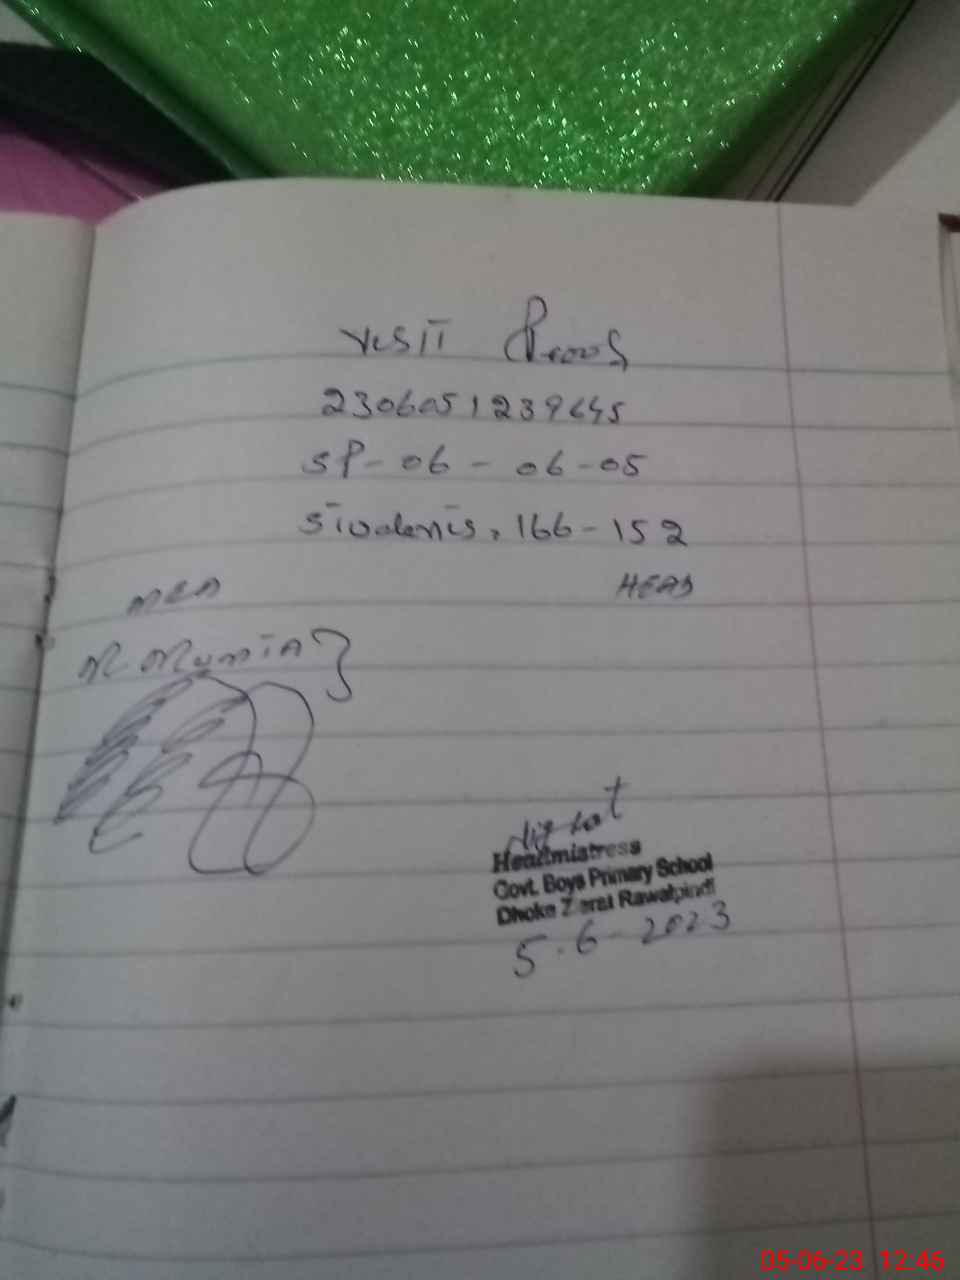 Visit Proof
2306051239645
SP-06-06-05
Students, 166-152
MEA
HEAD
M Mumtaz
Headmistress
Govt. Boys Primary School
Dhoke Ziarat Rawalpindi
5-6-2023
05-06-23 12:46